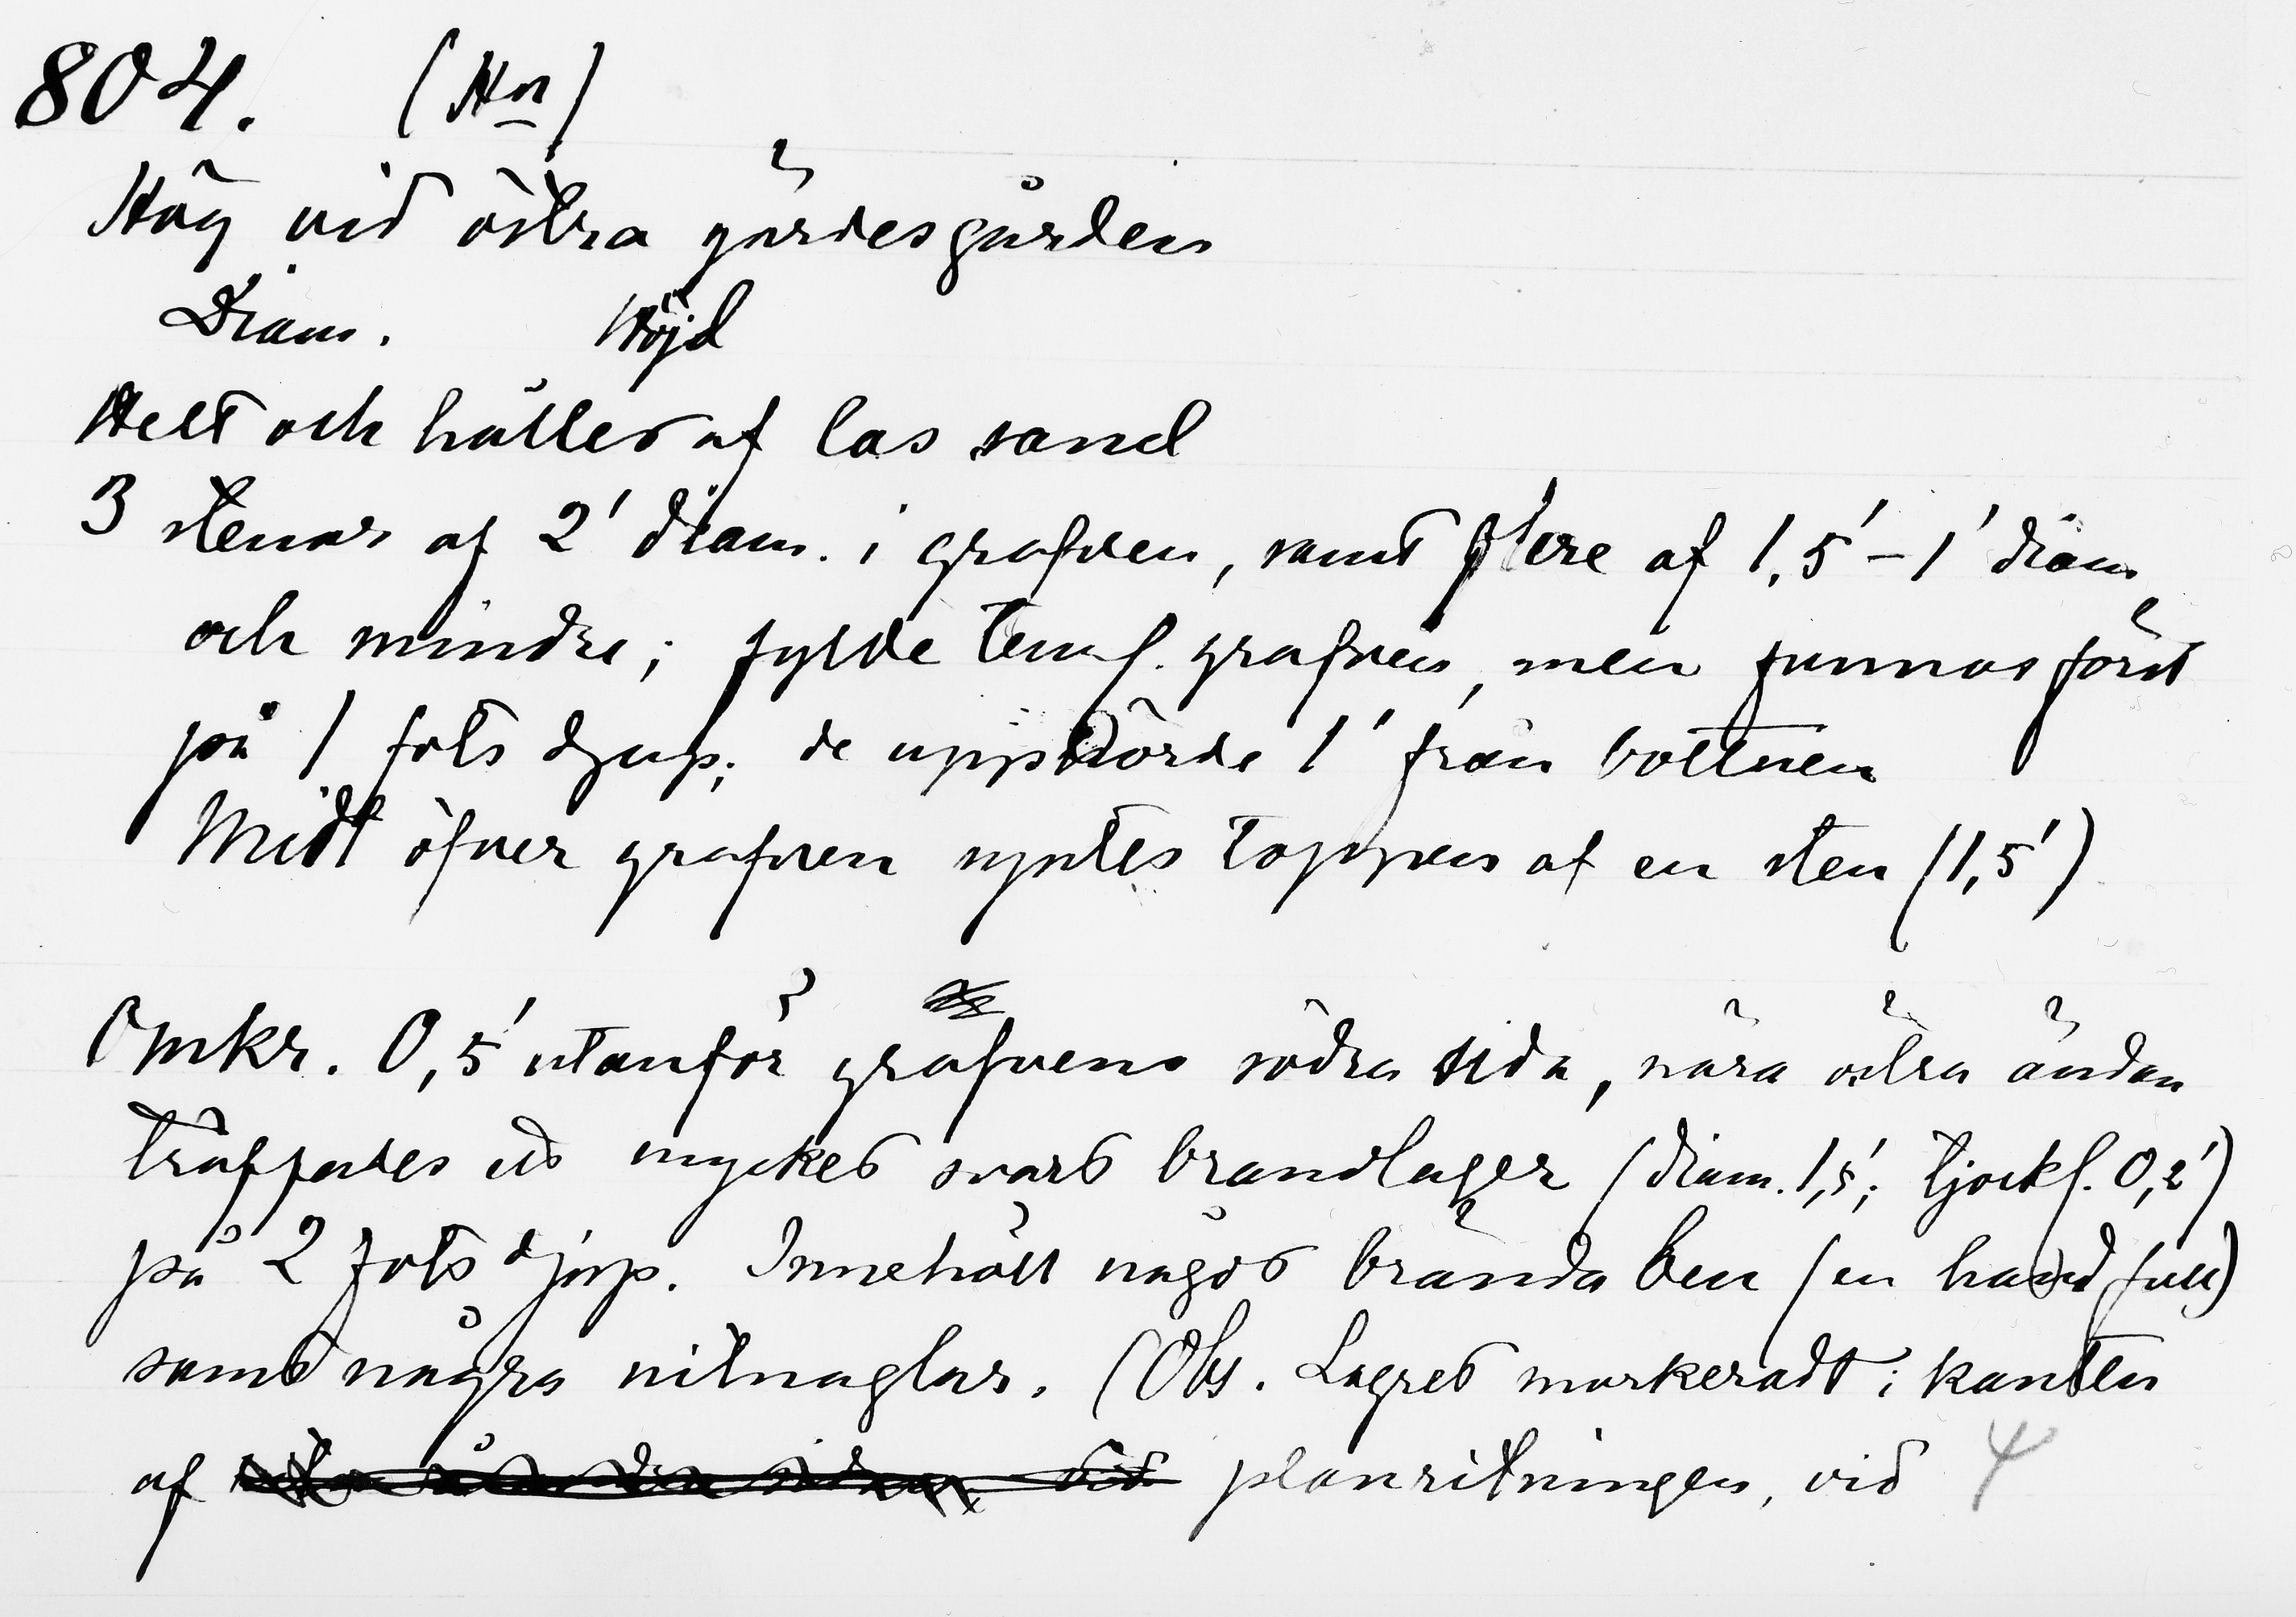 804. (Hn)
Hög vid östra gärdesgården
Diam. Höjd
Helt och hållet af lös sand
3 stenar af 2' diam. i grafven, samt flere af 1,5'–1' diam.
och mindre; fylde temf. grafven, men funnos först
på 1 fots djup; de upphörde 1' från bottnen
Midt öfver grafven syntes toppen af en sten (1,5')
Omkr. 0,5' utanför grafvens södra sida, nära östra ändan
träffades ett mycket svart brandlager (diam. 1,5'; tjockl. 0,2')
på 2 fots djup. Innehöll något brända ben (en hand full)
samt några nitnaglar. (Obs. Lagret markeradt i kanten
af planritningen, vid 4